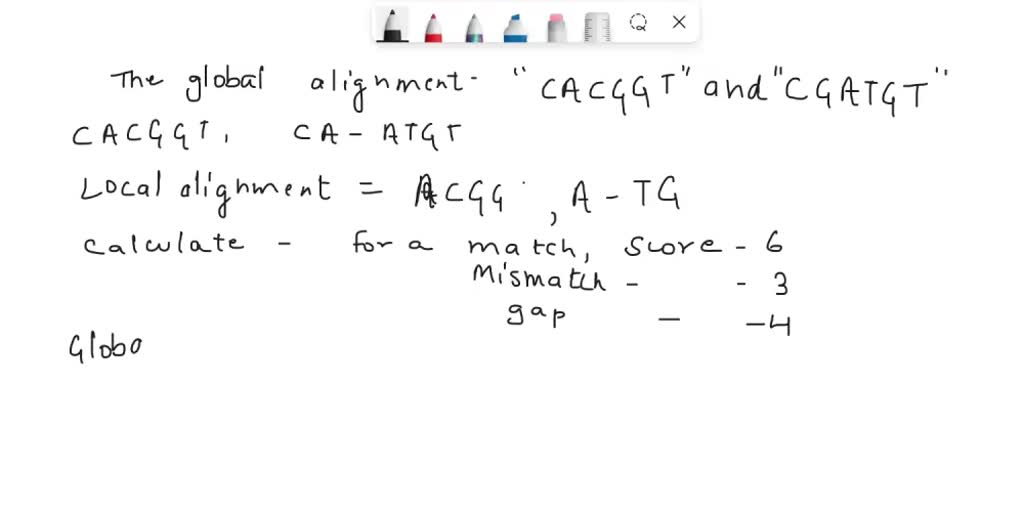 The global alignment - "CACGGT" and "CGATGT"
CACGGT, CA - ATGT
Local alignment = ACGG , A - TG
Calculate - for a match, score - 6
Mismatch - - 3
gap - -4
Globa